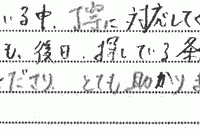 いる中、丁寧に対応してく
も、後日探している条
ださり とても助かりま